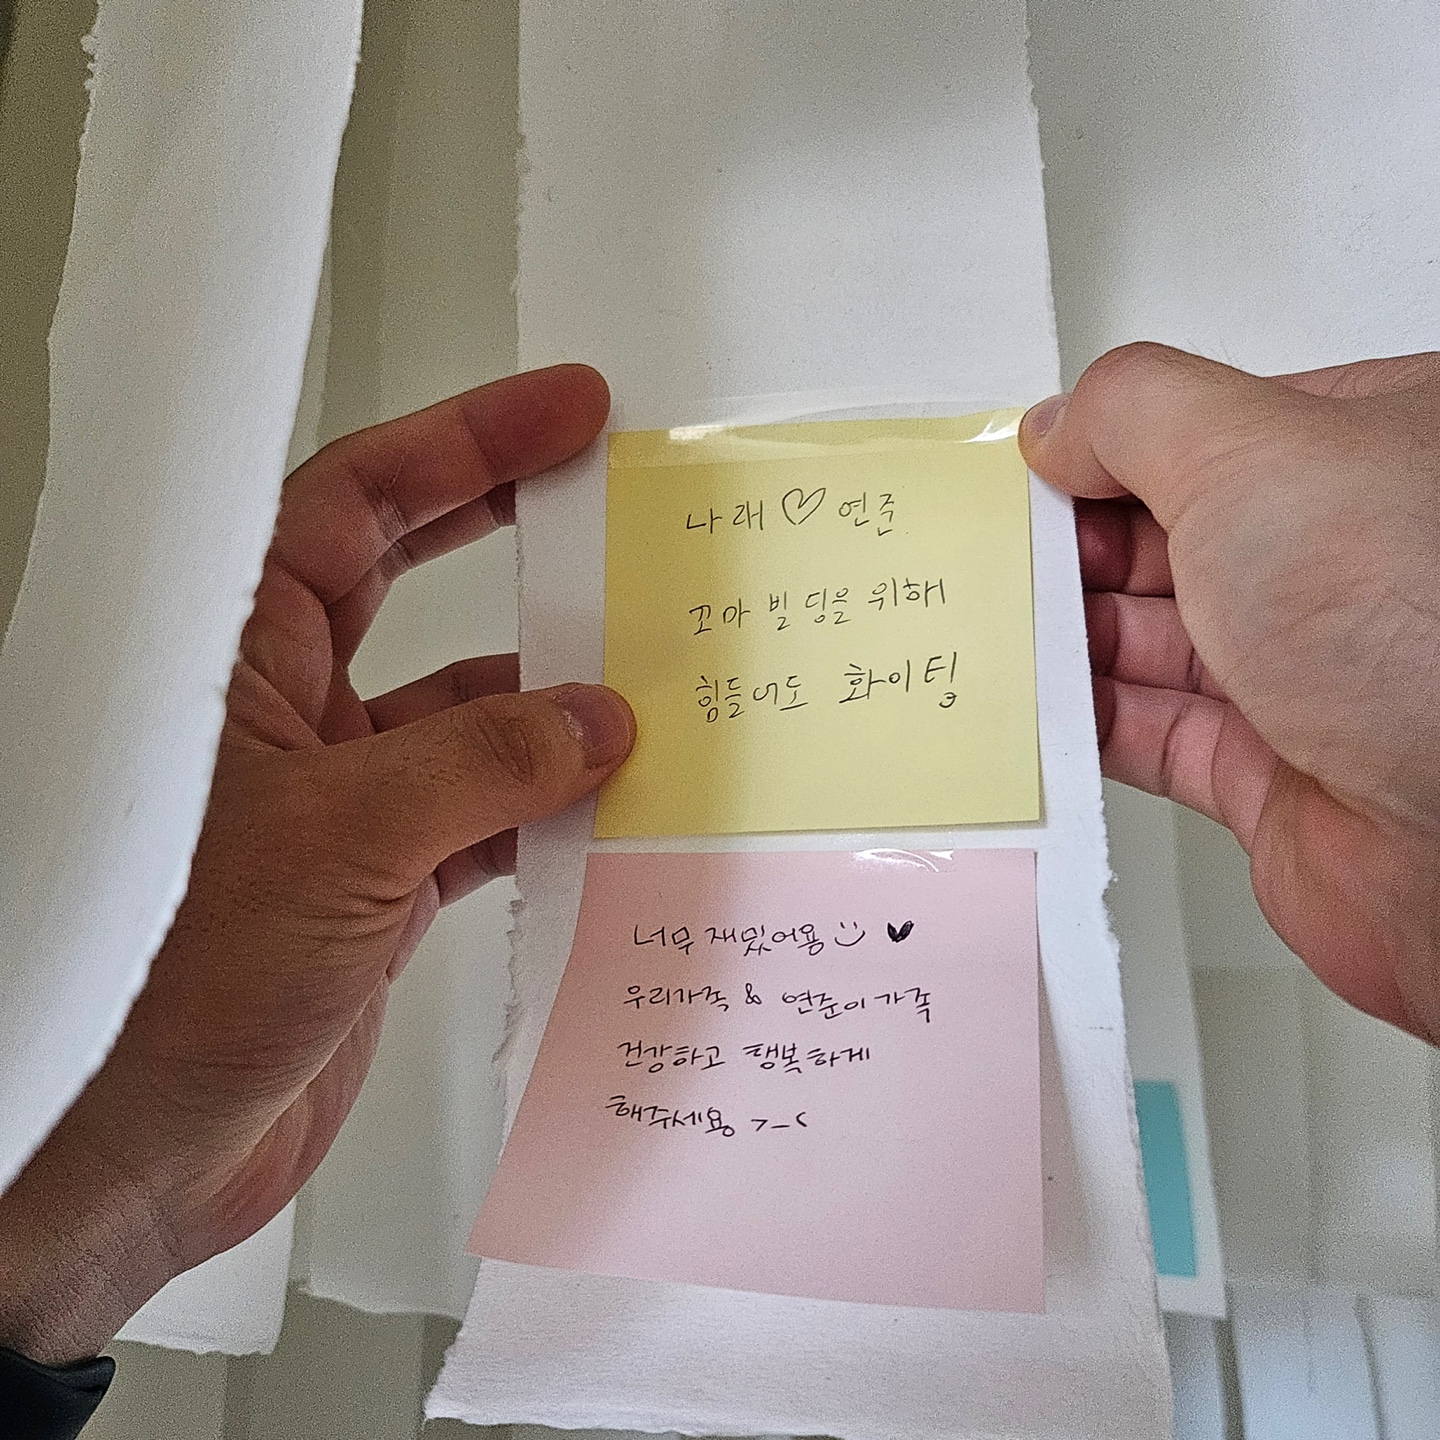 나래 ♡ 연준
꼬마 빌딩을 위해
힘들어도 화이팅
너무 재밌어용 :) ♥
우리가족 & 연준이 가족
건강하고 행복하게
해주세용 >_<